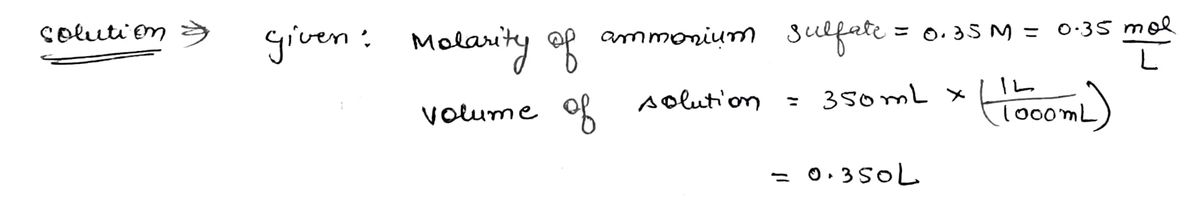 solution ⇒ given: Molarity of ammonium sulfate = 0.35 M = 0.35 mol/L
volume of solution = 350 mL × (1L/1000mL)
= 0.350L